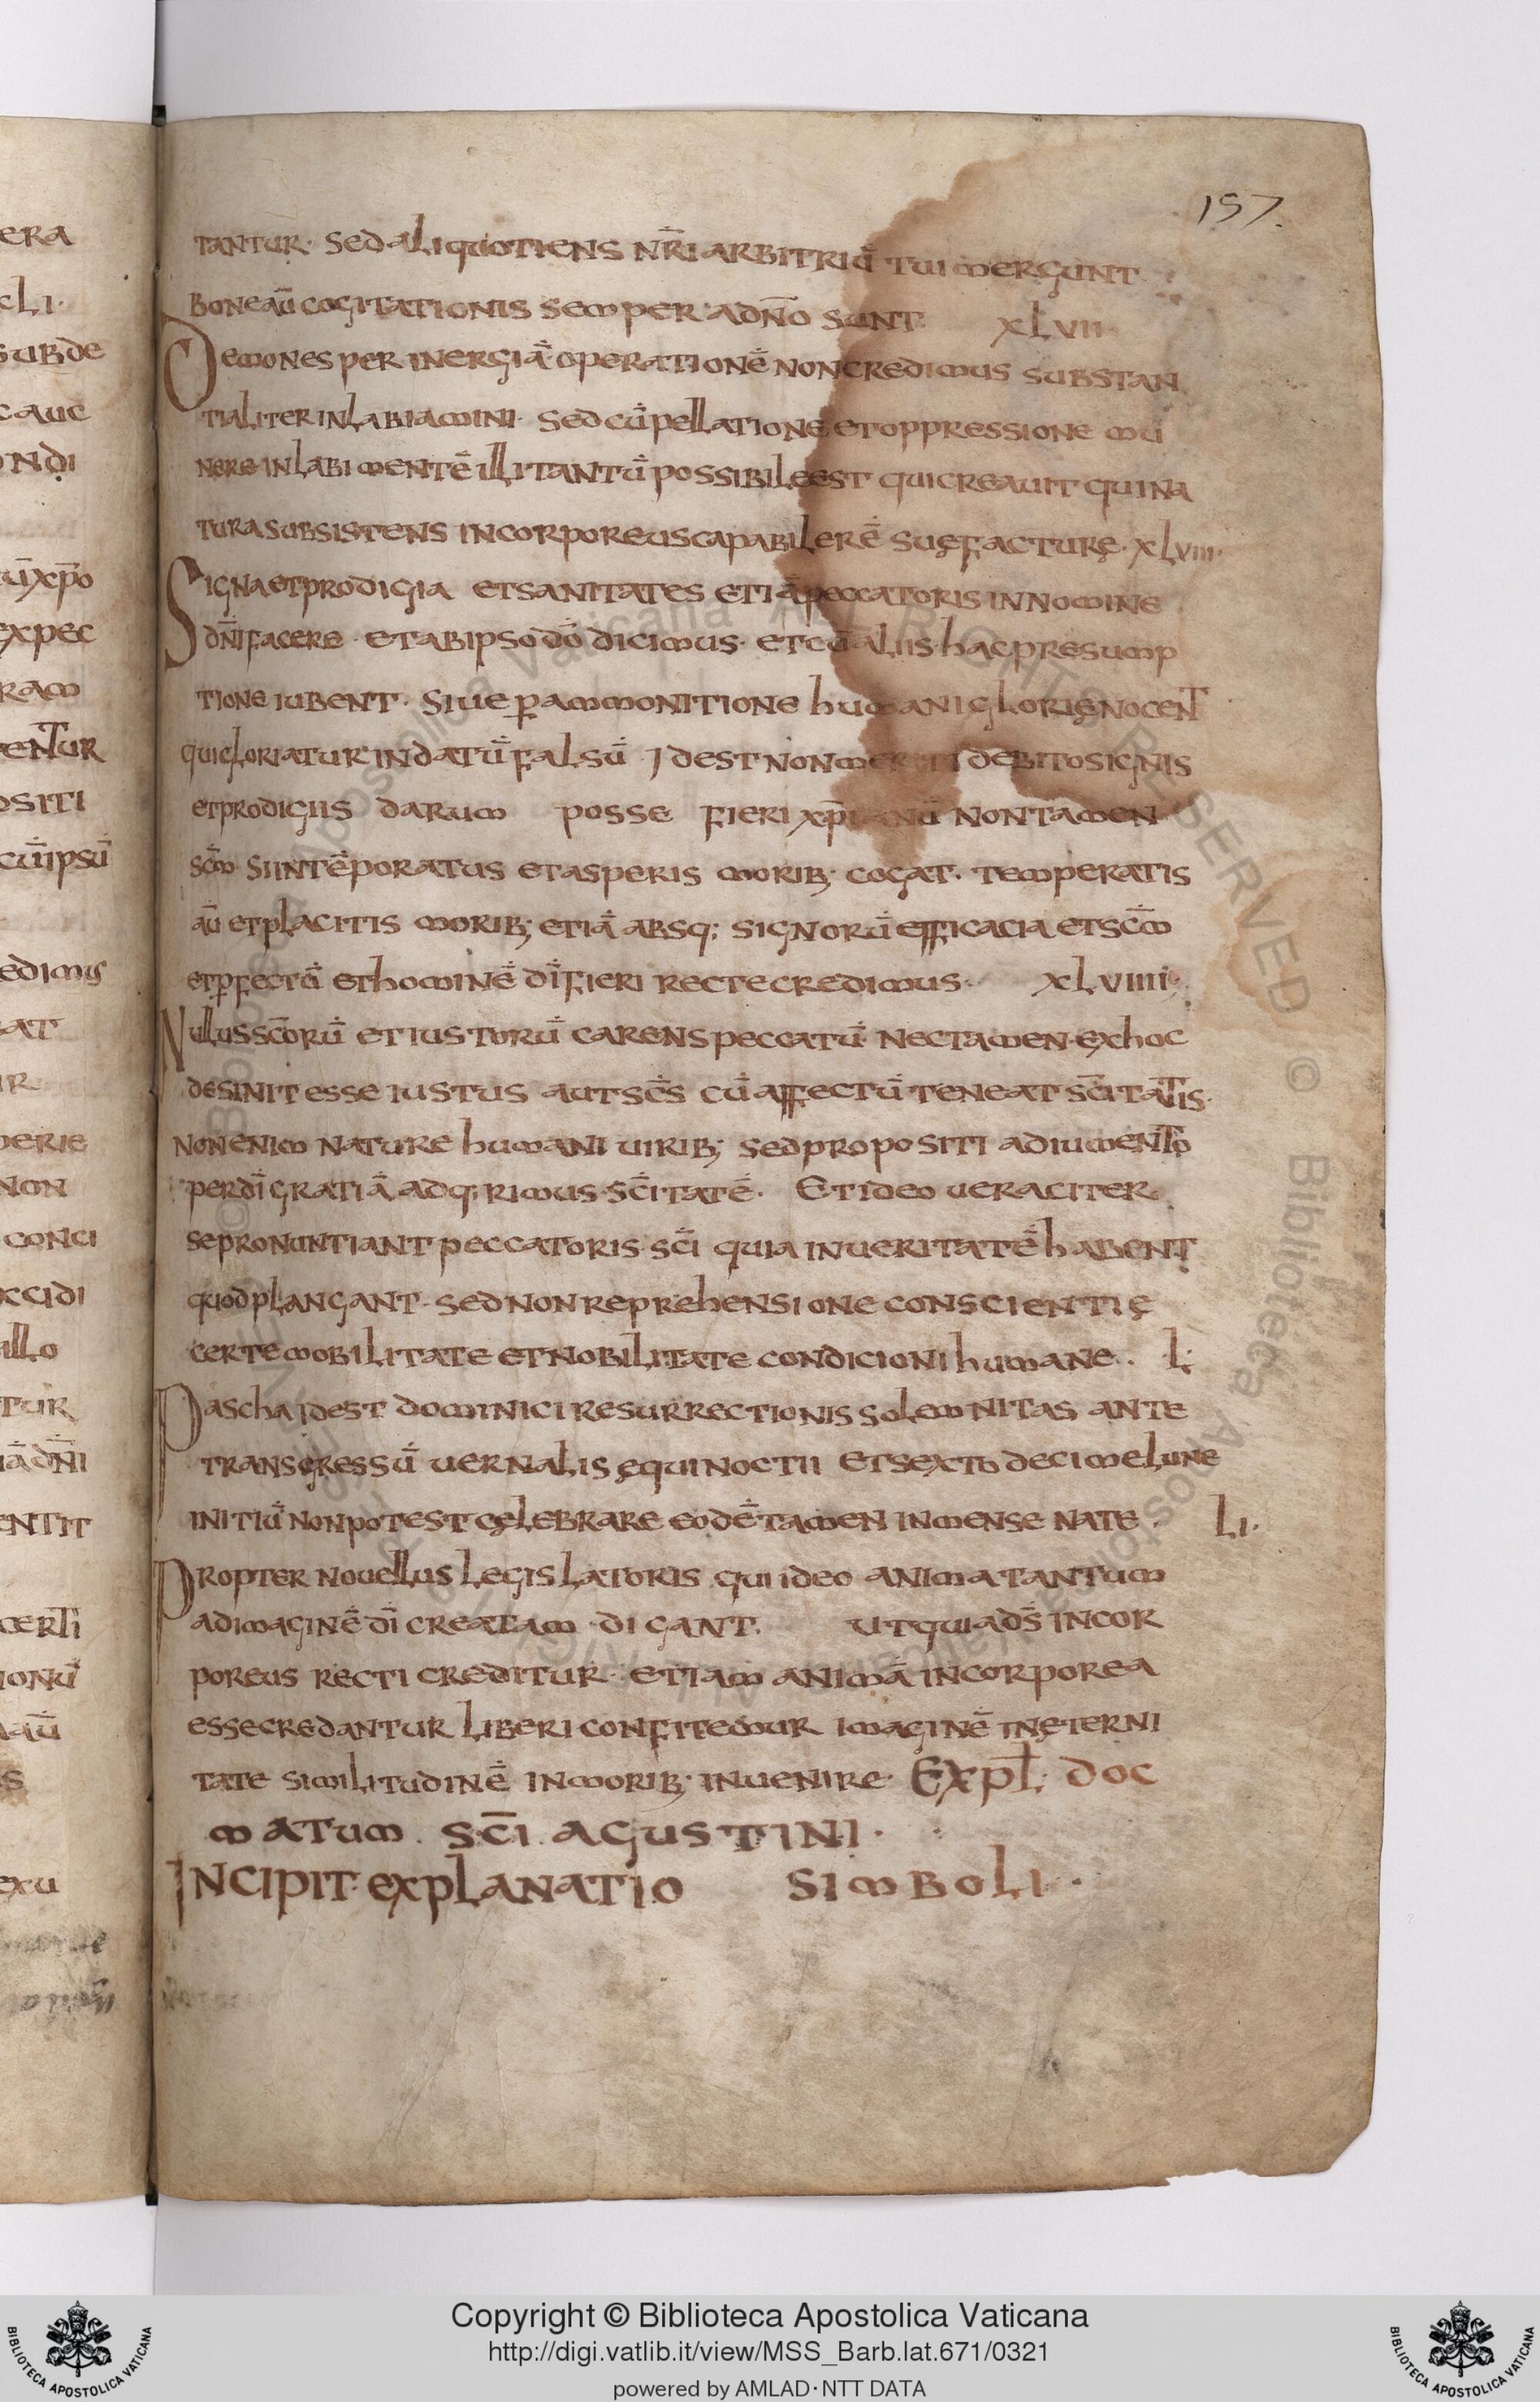 157.
tantur· sed aliquotiens nr̄i arbitriū tui mergunt
bone aū cogitationis semper adn̄o sunt. xlvii
Demones per inergiā operationē non credimus substan
tialiter inlabi amini· sed cū pellatione et oppressione mu
nere inlabi mentē illi tantū possibile est qui creauit qui na
tura subsistens incorporeus capabilerē suę facturę· xlviii·
Signa et prodigia et sanitates etiā peccatoris in nomine
dn̄i facere· et ab ipso dō dicimus· et cū aliis hac presump
tione iubent· siue p̄ ammonitione humani glorię nocent
qui gloriatur in datū falsū Idest non meriti debito signis
et prodigiis darum posse fieri xp̄ianū non tamen
sc̄m· si intēporatus et asperis morib; cogat· temperatis
aū et placitis morib; etiā absq; signorū efficacia et sc̄m
et p̄fectū et hominē dī fieri recte credimus· xlviiii·
Nullus sc̄orū et iustorū carens peccatū· nec tamen ex hoc
desinit esse iustus aut sc̄s cū affectū teneat sc̄itatis·
non enim nature humani uirib; sed propositi adiumento
per dī gratiā adq;rimus sc̄itatē· Et ideo ueraciter
se pronuntiant peccatoris sc̄i quia in ueritatē habent
quod plangant· sed non reprehensione conscientię
certe mobilitate et nobilitate condicioni humane·. l;
Pascha idest dominici resurrectionis solemnitas ante
transgressū uernalis ęquinoctii et sexto decime lune
initiū non potest cęlebrare eodē tamen in mense nate· li·
Propter nouellus legislatoris qui ideo anima tantum
ad imaginē dī creatam dicant. ut quia ds̄ incor
poreus recti creditur· etiam animā incorporea
esse credantur liberi confitemur imaginē in ęterni
tate similitudinē in morib; inuenire· Expl̄· doc
matum sc̄i agustini·
Incipit explanatio simboli·
era
cli·
sub de
cauc
ndi
ū xp̄o
expec
ram
entur
ositi
cū ipsū
edimus
at
ir
perie
non
conci
xcidi
illo
tur
iā dn̄i
entit
certi
ionū
aū
s
exu
Copyright © Biblioteca Apostolica Vaticana
http://digi.vatlib.it/view/MSS_Barb.lat.671/0321
powered by AMLAD·NTT DATA
BIBLIOTECA APOSTOLICA VATICANA
BIBLIOTECA APOSTOLICA VATICANA